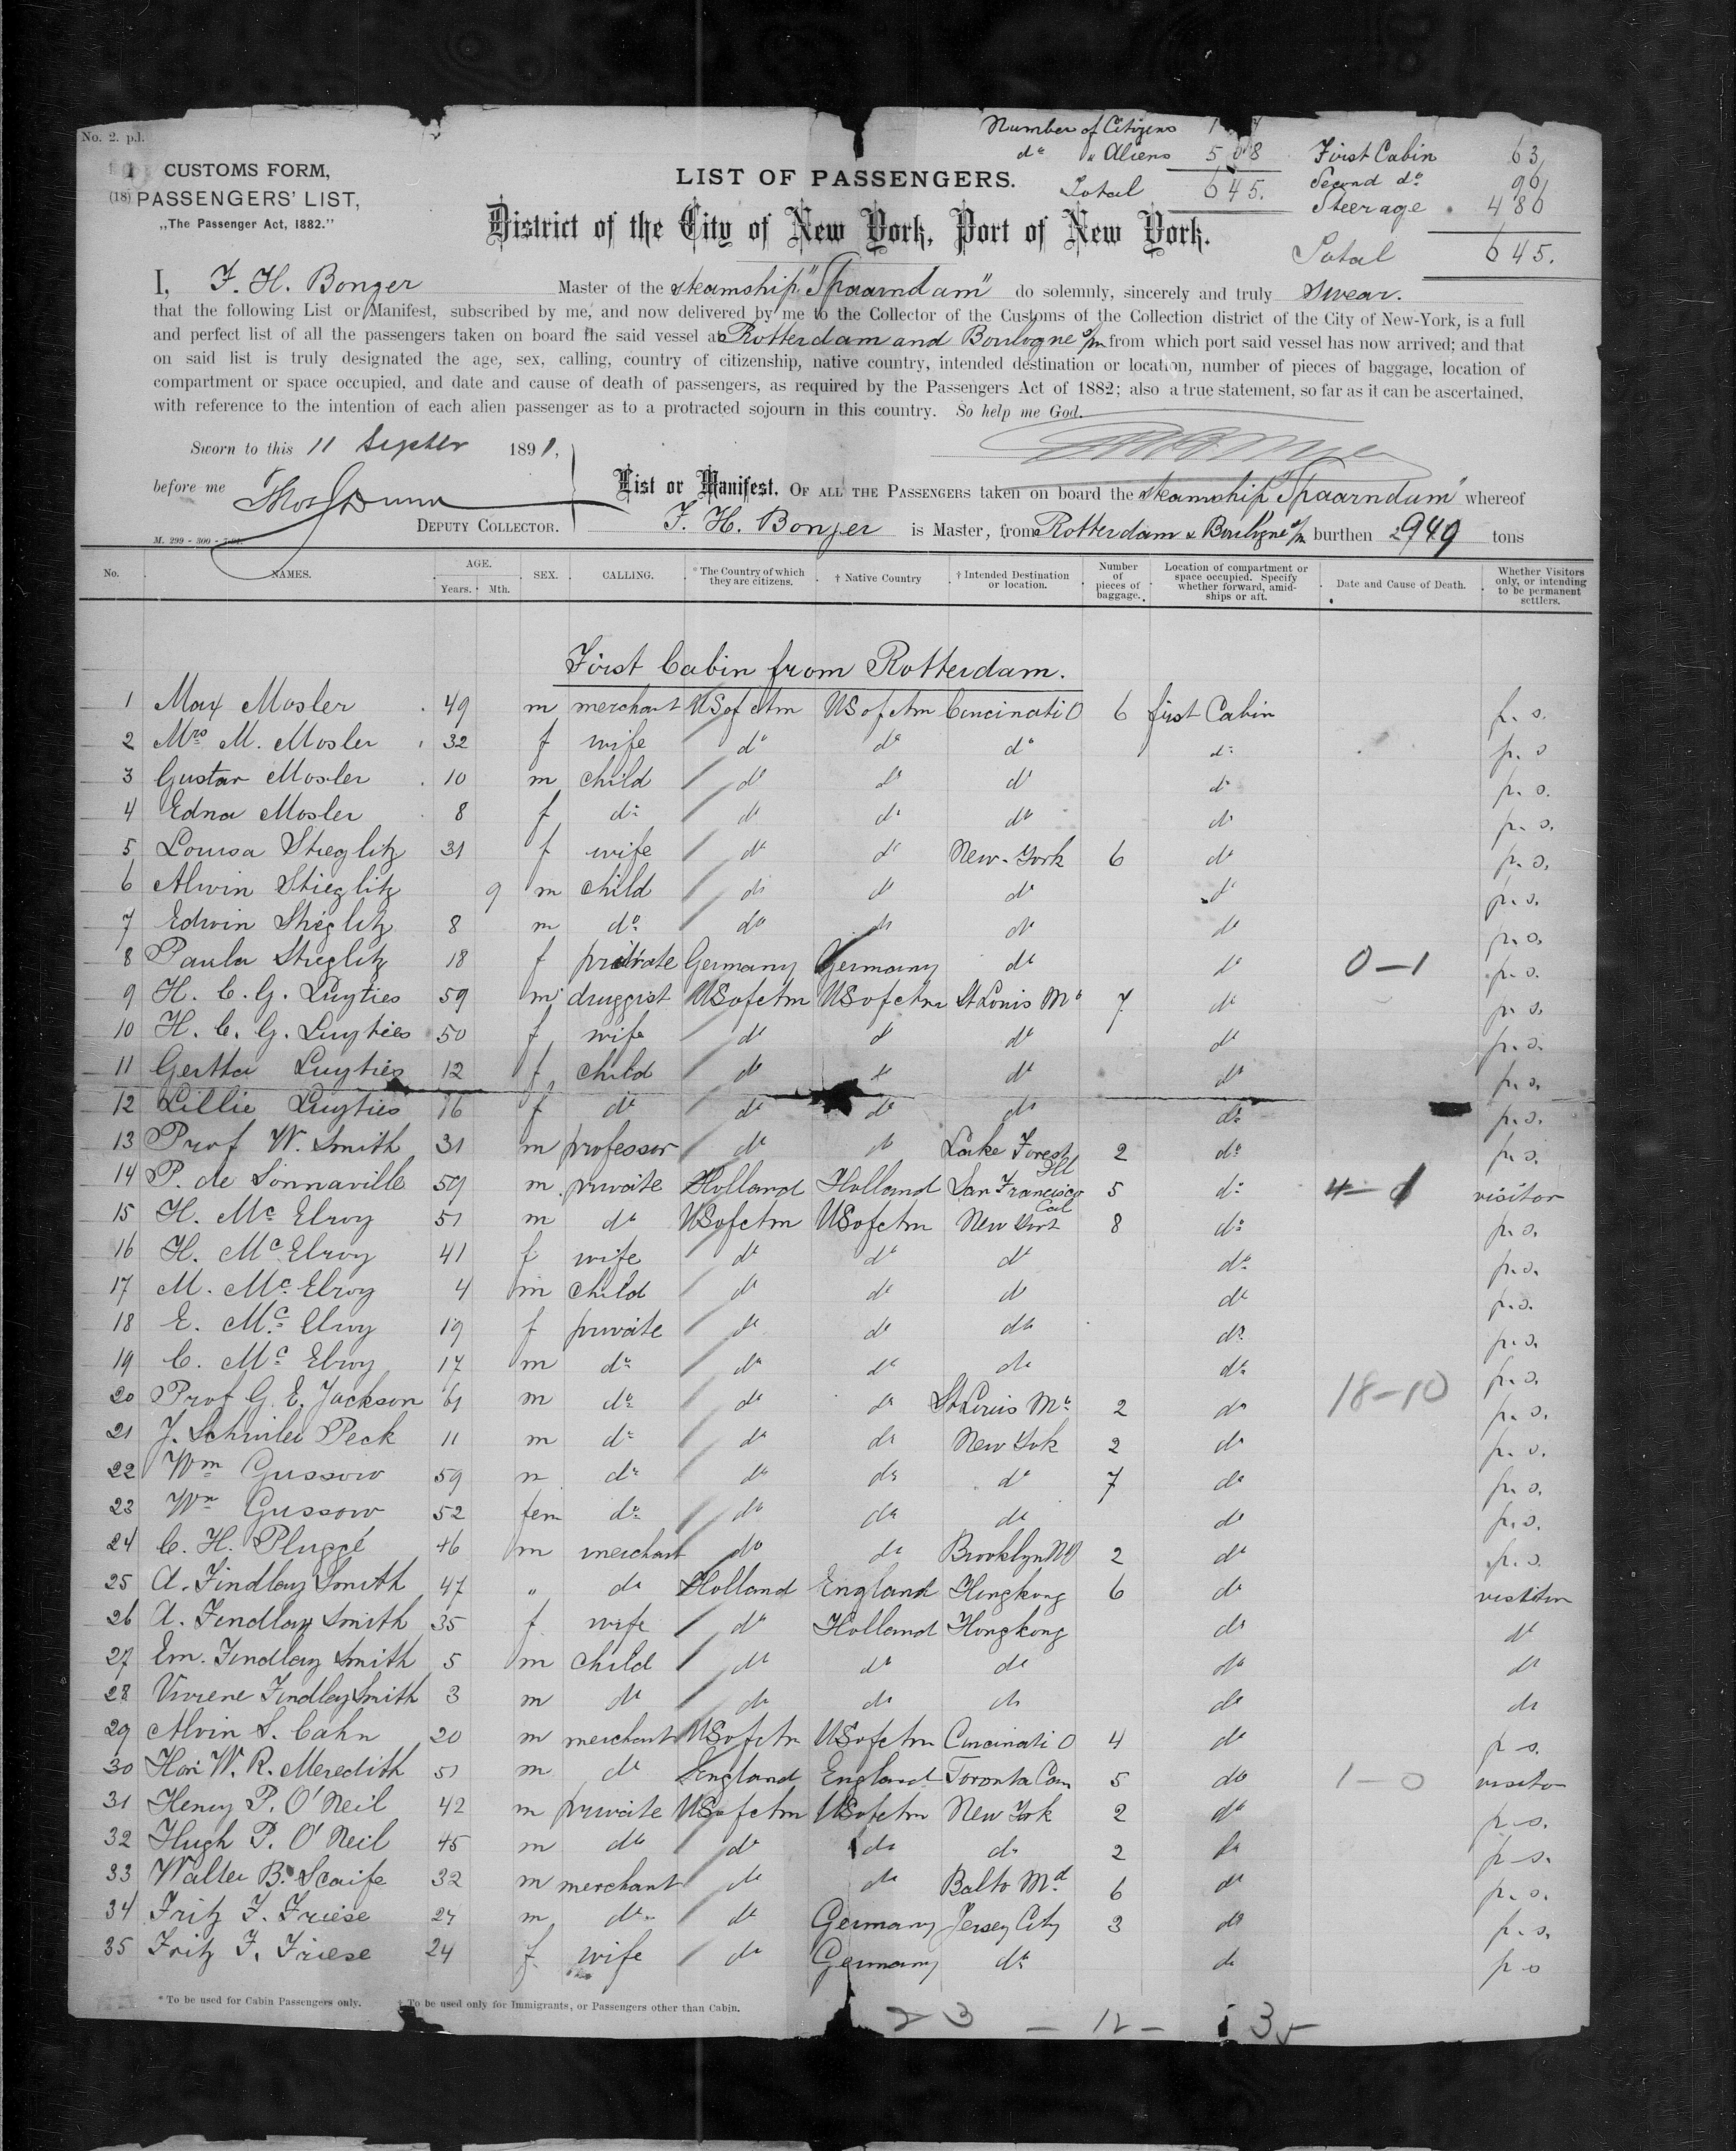 No. 2. p.l.
CUSTOMS FORM,
(18) PASSENGERS' LIST,
„The Passenger Act, 1882."
Number of Citizens
do " Aliens 508
Total 645.
First Cabin 63
Second do 96
Steerage 486
Total 645.
LIST OF PASSENGERS.
District of the City of New York, Port of New York.
I, F. H. Bonger Master of the steamship "Spaarndam" do solemnly, sincerely and truly swear.
that the following List or Manifest, subscribed by me, and now delivered by me to the Collector of the Customs of the Collection district of the City of New-York, is a full
and perfect list of all the passengers taken on board the said vessel at Rotterdam and Boulogne s/m from which port said vessel has now arrived; and that
on said list is truly designated the age, sex, calling, country of citizenship, native country, intended destination or location, number of pieces of baggage, location of
compartment or space occupied, and date and cause of death of passengers, as required by the Passengers Act of 1882; also a true statement, so far as it can be ascertained,
with reference to the intention of each alien passenger as to a protracted sojourn in this country. So help me God.
Sworn to this 11 Septber 1891,
before me
DEPUTY COLLECTOR.
List or Manifest, OF ALL THE PASSENGERS taken on board the steamship "Spaarndam" whereof
F. H. Bonger is Master, from Rotterdam & Boulogne s/m burthen 2949 tons
M. 299 - 300 -
No. NAMES. AGE. Years. Mth. SEX. CALLING. * The Country of which they are citizens. † Native Country † Intended Destination or location. Number of pieces of baggage. Location of compartment or space occupied. Specify whether forward, amidships or aft. Date and Cause of Death. Whether Visitors only, or intending to be permanent settlers.
First Cabin from Rotterdam.
1 Max Mosler 49 m merchant US of Am US of Am Cincinati O 6 first Cabin p. s.
2 Mrs M. Mosler 32 f wife do do do do p. s
3 Gustav Mosler 10 m child do do do do p. s.
4 Edna Mosler 8 f do do do do do p. s.
5 Louisa Stieglitz 31 f wife do do New-York 6 do p. s.
6 Alwin Stieglitz 9 m child do do do do p. s.
7 Edwin Stieglitz 8 m do do do do do p. s.
8 Paula Stieglitz 18 f private Germany Germany do do 0-1 p. s.
9 H. C. G. Luyties 59 m druggist US of Am US of Am St Louis Mo 7 do p. s.
10 H. C. G. Luyties 50 f wife do do do do p. s.
11 Gertha Luyties 12 f child do do do do p. s.
12 Lillie Luyties 16 f do do do do do p. s.
13 Prof W. Smith 31 m professor do do Lake Forest Ill 2 do p. s.
14 P. de Sonnaville 59 m private Holland Holland San Francisco Cal 5 do visitor
15 H. Mc Elroy 51 m do US of Am US of Am New York 8 do p. s.
16 H. Mc Elroy 41 f wife do do do do p. s.
17 M. Mc Elroy 4 m child do do do do p. s.
18 E. Mc Elroy 19 f private do do do do p. s.
19 C. Mc Elroy 17 m do do do do do p. s.
20 Prof G. E. Jackson 61 m do do do St Louis Mo 2 do 18-10 p. s.
21 J. Schuiler Peck 11 m do do do New Yok 2 do p. s.
22 Wm Gussow 59 m do do do do 7 do p. s.
23 Wm Gussow 52 fem do do do do do p. s.
24 C. H. Pluggé 46 m merchant do do Brooklyn 2 do p. s.
25 A. Findlay Smith 47 " do Holland England Hongkong 6 do visitor
26 A. Findlay Smith 35 f wife do Holland Hongkong do do
27 Em. Findlay Smith 5 m child do do do do do
28 Viviene Findlay Smith 3 m do do do do do do
29 Alvin S. Cahn 20 m merchant US of Am US of Am Cincinati O 4 do p. s.
30 Hon W. R. Meredith 51 m do England England Toronto Can 5 do 1-0 visitor
31 Henry P. O'Neil 42 m private US of Am US of Am New York 2 do p. s.
32 Hugh P. O'Neil 45 m do do do do 2 do p. s.
33 Walter B. Scaife 32 m merchant do do Balto Md 6 do p. s.
34 Fritz F. Friese 27 m do do Germany Jersey City 3 do p. s.
35 Fritz F. Friese 24 f wife do Germany do do p s
* To be used for Cabin Passengers only. † To be used only for Immigrants, or Passengers other than Cabin.
23 - 12 - 35